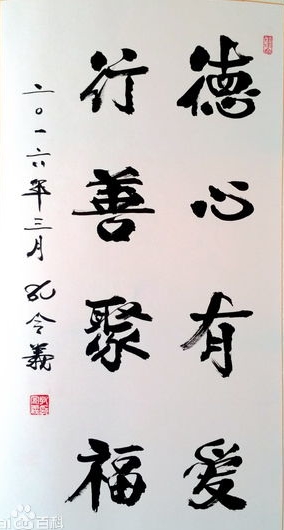 德心有爱
行善聚福
二〇一六年三月 孔令義
Bai 百科